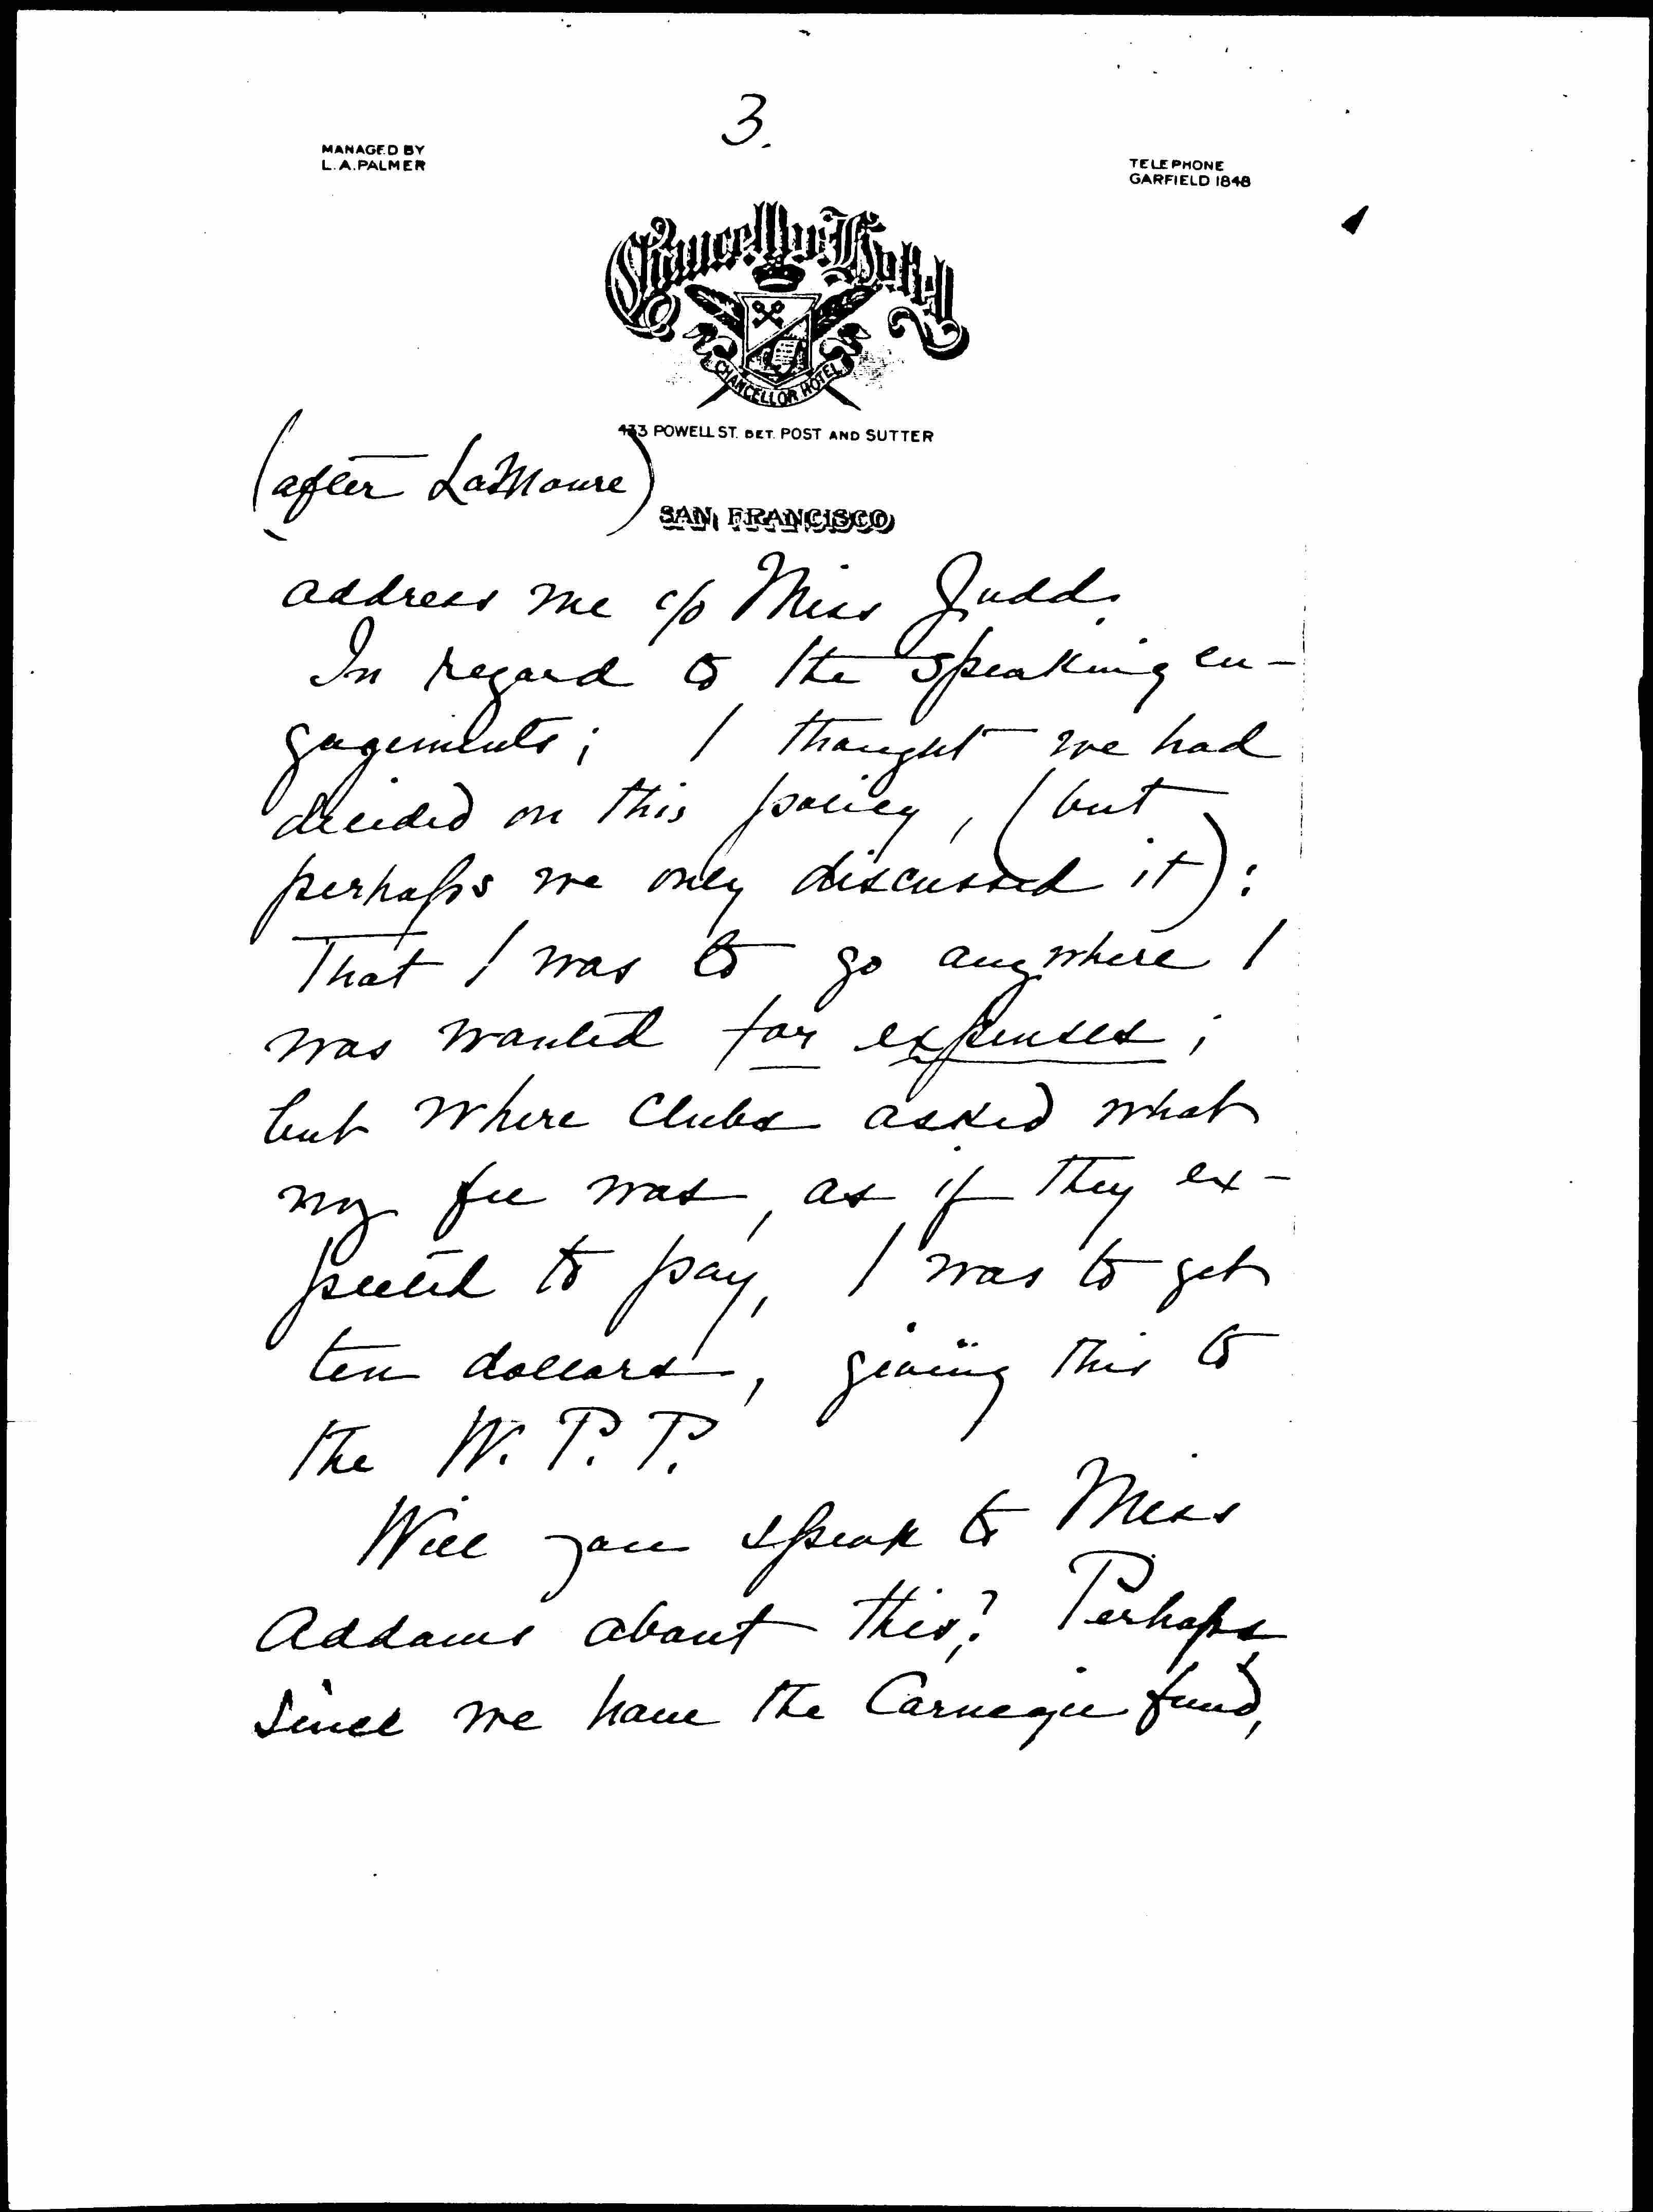 3.
MANAGED BY
L.A. PALMER
TELEPHONE
GARFIELD 1848
Chancellor Hotel
CHANCELLOR HOTEL
433 POWELL ST. BET. POST AND SUTTER
(after LaMoure)
SAN FRANCISCO
address me c/o Miss Judd.
In regard to the speaking en-
gagements; I thought we had
decided on this policy, (but
perhaps we only discussed it):
That I was to go anywhere I
was wanted for expenses;
but where clubs asked what
my fee was, as if they ex-
pected to pay, I was to get
ten dollars, giving this to
the W. P. P.
Will you speak to Miss
Addams about this? Perhaps
since we have the Carnegie fund,